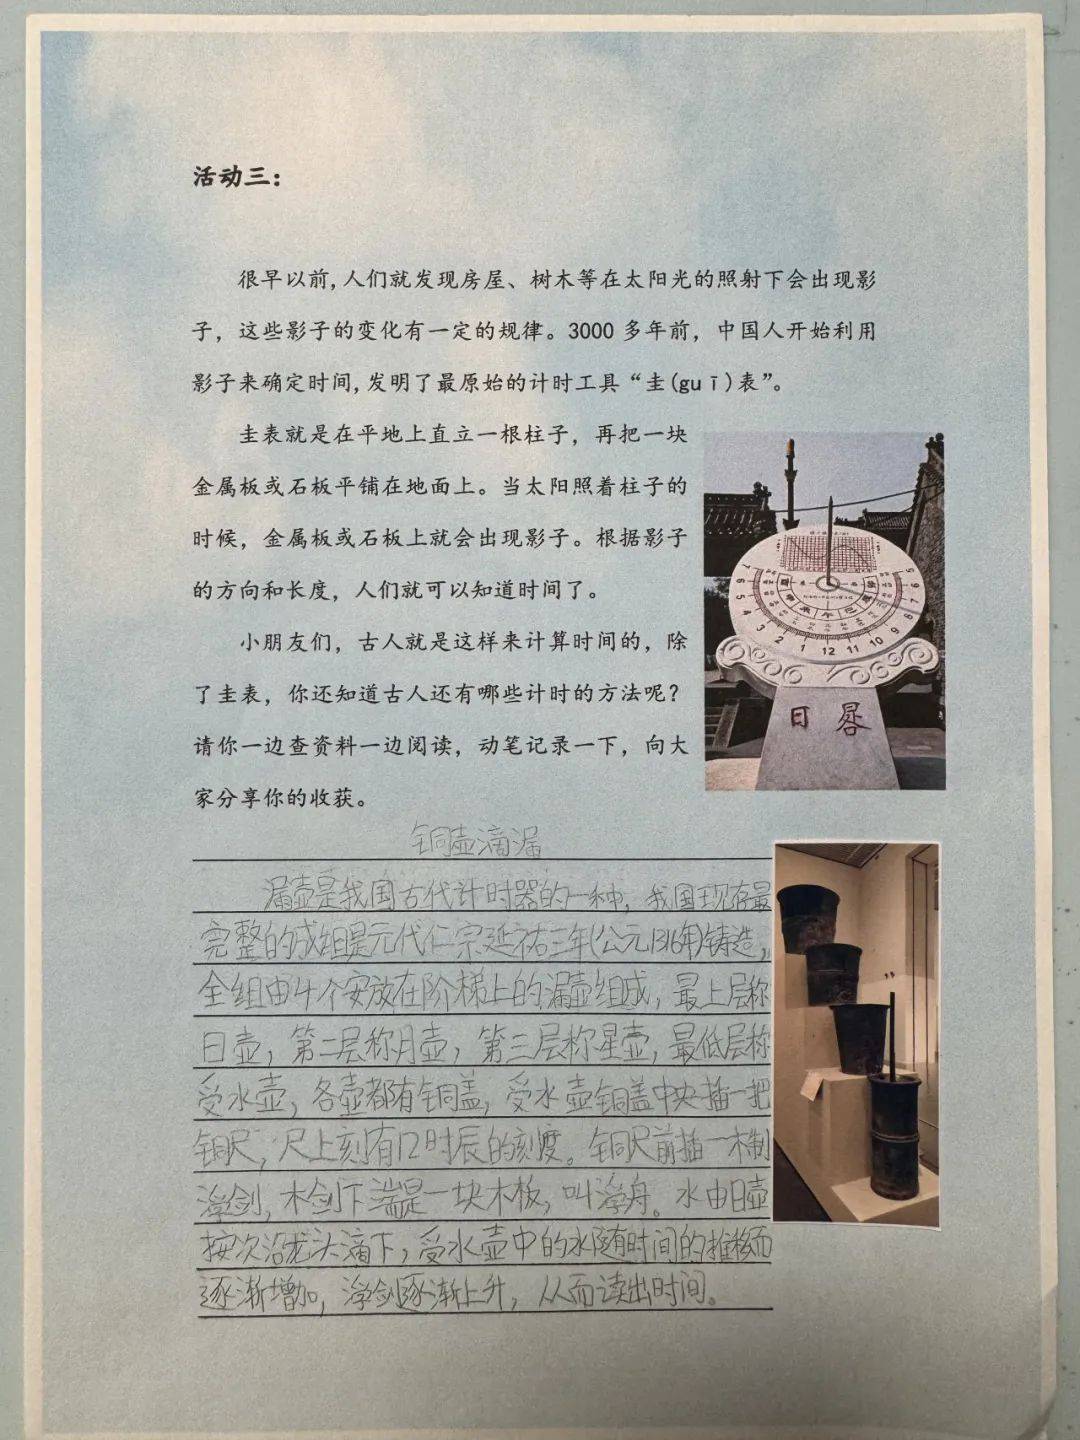 活动三：
很早以前，人们就发现房屋、树木等在太阳光的照射下会出现影
子，这些影子的变化有一定的规律。3000 多年前，中国人开始利用
影子来确定时间，发明了最原始的计时工具“圭(guī)表”。
圭表就是在平地上直立一根柱子，再把一块
金属板或石板平铺在地面上。当太阳照着柱子的
时候，金属板或石板上就会出现影子。根据影子
的方向和长度，人们就可以知道时间了。
小朋友们，古人就是这样来计算时间的，除
了圭表，你还知道古人还有哪些计时的方法呢？
请你一边查资料一边阅读，动笔记录一下，向大
家分享你的收获。
日晷
铜壶滴漏
漏壶是我国古代计时器的一种，我国现存最
完整的成组是元代仁宗延祐三年(公元1316年)铸造，
全组由4个安放在阶梯上的漏壶组成，最上层称
日壶，第二层称月壶，第三层称星壶，最低层称
受水壶，各壶都有铜盖，受水壶铜盖中央插一把
铜尺，尺上刻有12时辰的刻度。铜尺前插一木制
浮剑，木剑下端是一块木板，叫浮舟。水由日壶
按次沿龙头滴下，受水壶中的水随时间的推移而
逐渐增加，浮剑逐渐上升，从而读出时间。